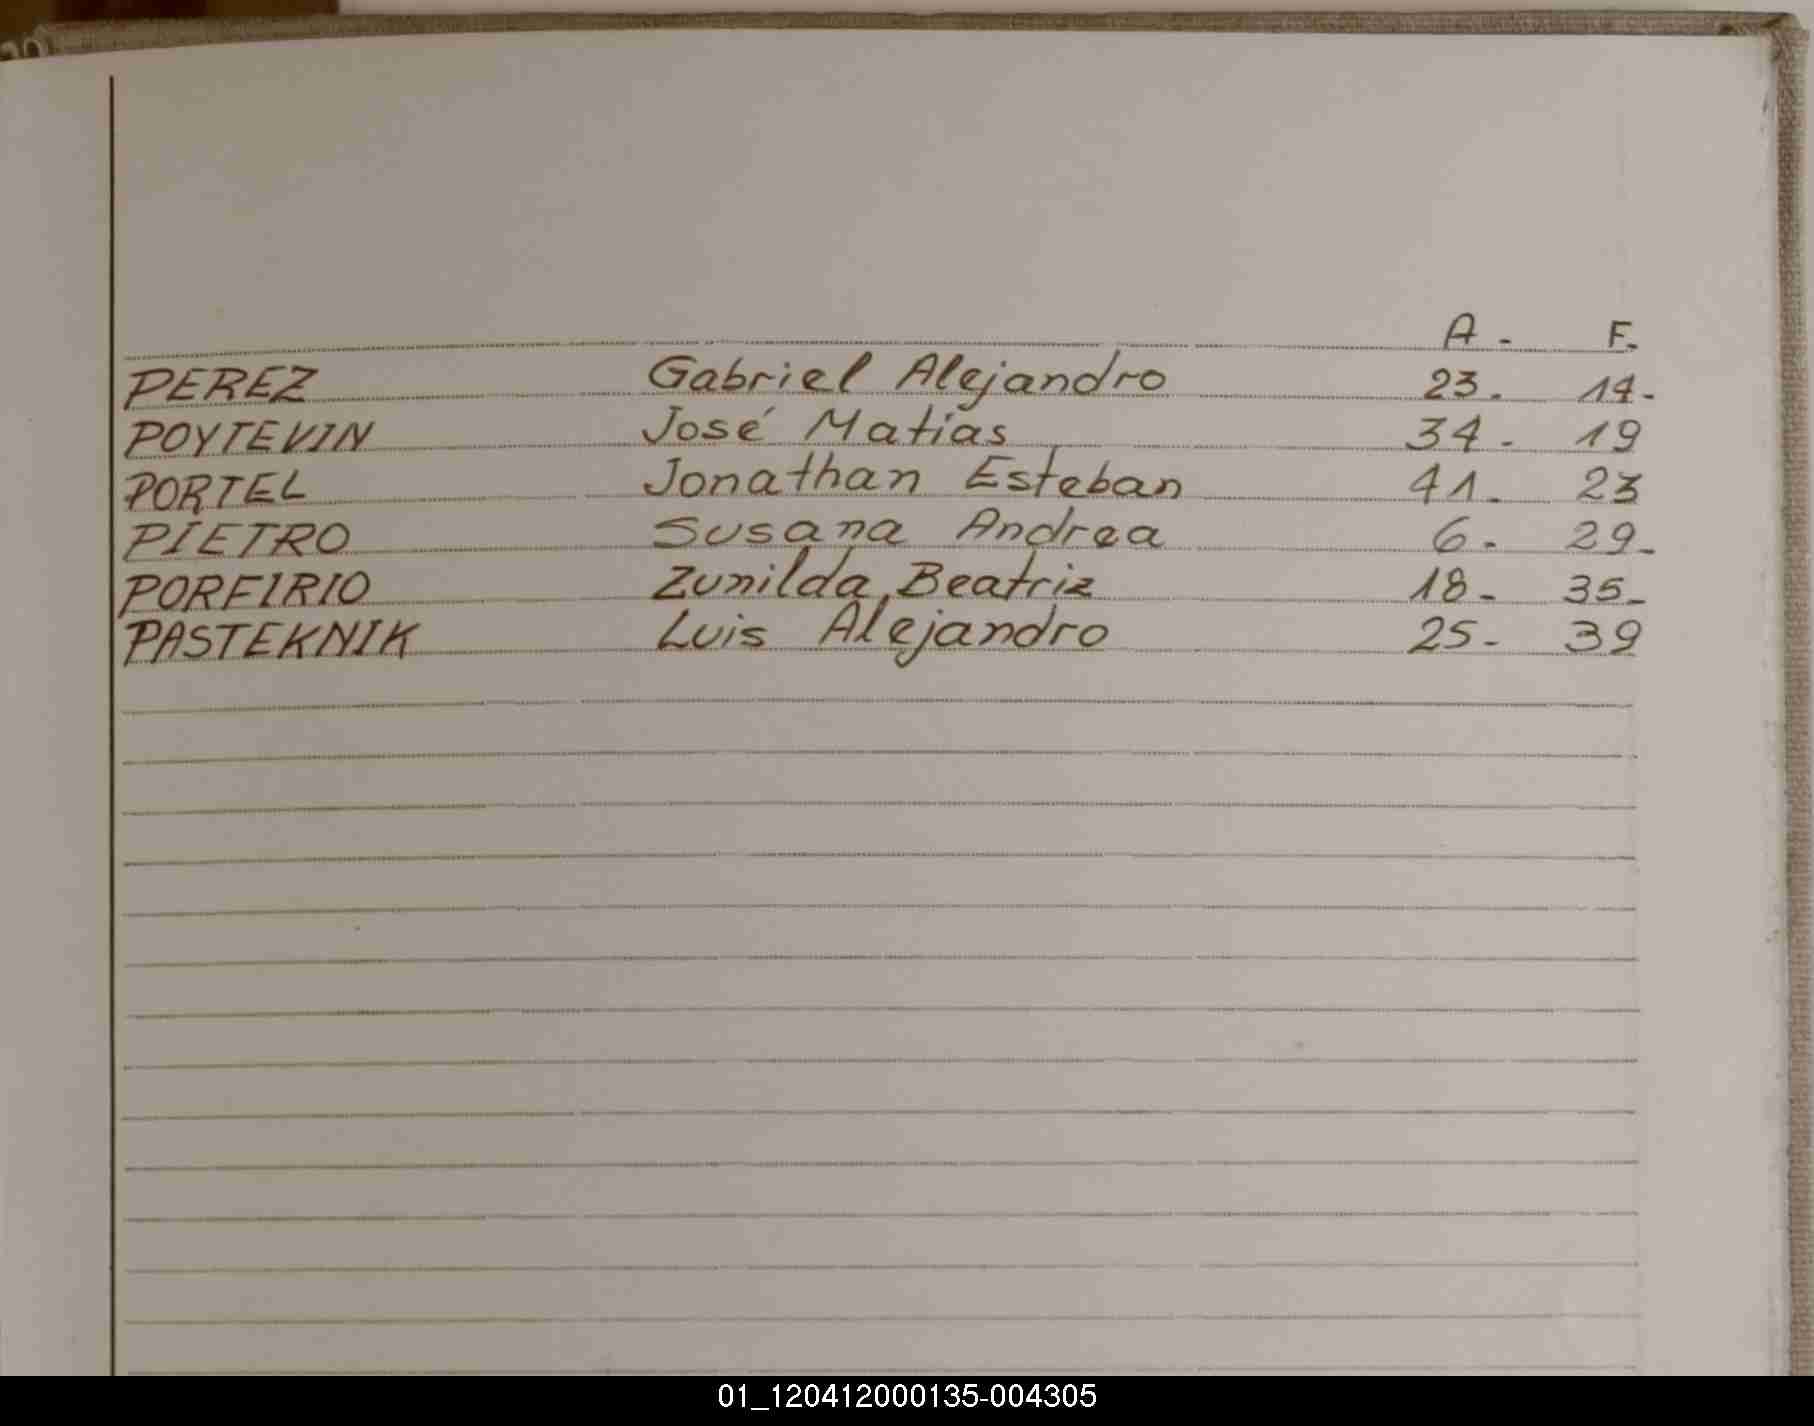 A - F.
PEREZ Gabriel Alejandro 23 - 14 -
POYTEVIN José Matías 34 - 19
PORTEL Jonathan Esteban 41 - 23
PIETRO Susana Andrea 6 - 29 -
PORFIRIO Zunilda Beatriz 18 - 35 -
PASTEKNIK Luis Alejandro 25 - 39
01_120412000135-004305